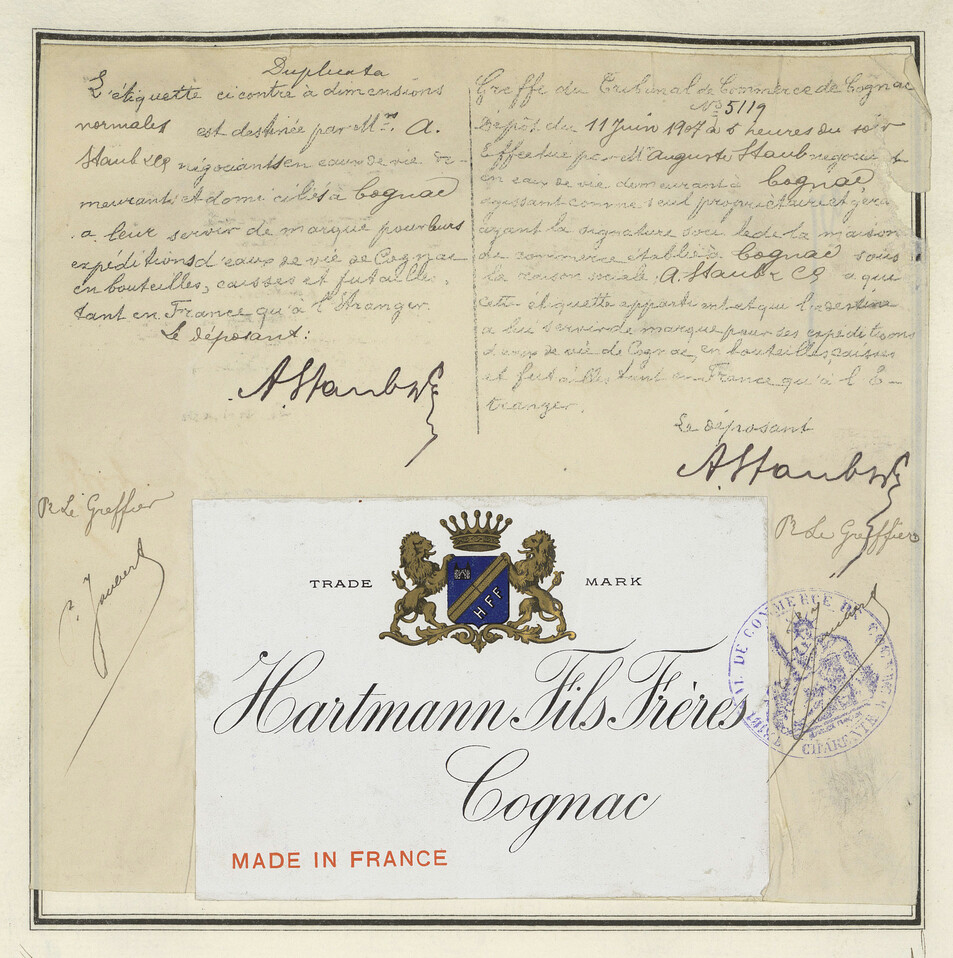 Duplicata
L'étiquette ci contre à dimensions
normales est destinée par Mrs A.
Staub & Co négociants en eaux de vie de-
meurant et domiciliés à Cognac
a leur servir de marque pour leurs
expéditions d'eaux de vie de Cognac
en bouteilles, caisses et futailles,
tant en France qu'à l'Etranger.
Le déposant:
A. Staub & Co
Pr Le Greffier
Greffe du Tribunal de Commerce de Cognac
No 5119
Dépôt du 11 Juin 1907 à 5 heures du soir
Effectué par Mr Auguste Staub négociant
en eaux de vie demeurant à Cognac,
agissant comme seul propriétaire et gérant
ayant la signature sociale de la maison
de commerce établie à Cognac sous
la raison sociale, A. Staub & Co a qui
cette étiquette appartient et qui l'a destine
a lui servir de marque pour ses expéditions
d'eaux de vie de Cognac, en bouteilles, caisses
et futailles tant en France qu'à l'E-
tranger.
Le déposant
A. Staub & Co
Pr Le Greffier
TRADE MARK
HFF
Hartmann Fils Frères
Cognac
MADE IN FRANCE
TRIBUNAL DE COMMERCE DE COGNAC
CHARENTE